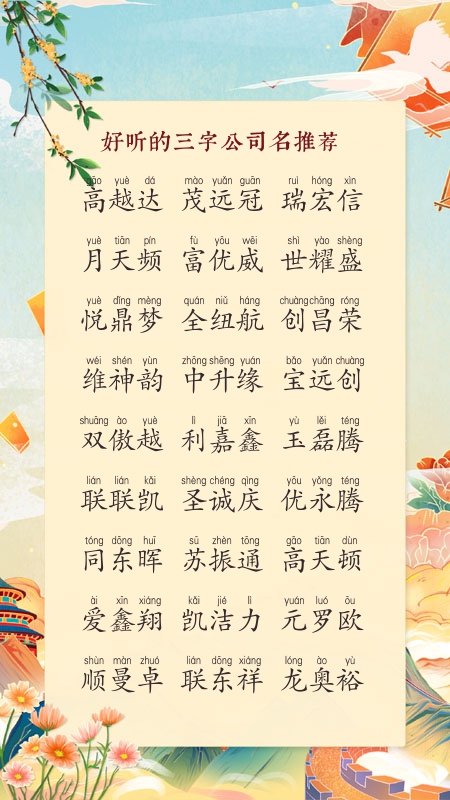 好听的三字公司名推荐
gāo yuè dá mào yuǎn guān ruì hóng xìn
高越达 茂远冠 瑞宏信
yuè tiān pín fù yōu wēi shì yào shèng
月天频 富优威 世耀盛
yuè dǐng mèng quán niǔ háng chuàng chāng róng
悦鼎梦 全纽航 创昌荣
wéi shén yùn zhōng shēng yuán bǎo yuǎn chuàng
维神韵 中升缘 宝远创
shuāng ào yuè lì jiā xīn yù lěi téng
双傲越 利嘉鑫 玉磊腾
lián lián kǎi shèng chéng qìng yōu yǒng téng
联联凯 圣诚庆 优永腾
tóng dōng huī sū zhèn tōng gāo tiān dùn
同东晖 苏振通 高天顿
ài xīn xiáng kǎi jié lì yuán luó ōu
爱鑫翔 凯洁力 元罗欧
shùn màn zhuó lián dōng xiáng lóng ào yù
顺曼卓 联东祥 龙奥裕